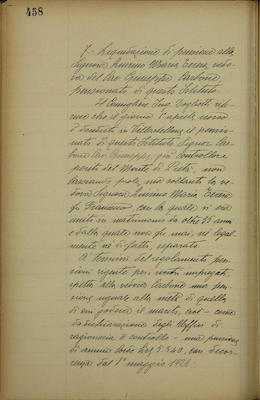 458
7. - Liquidazione di pensione alla
Signora Maria vedo-
va del Cav. Giuseppe Carbone,
pensionato di questo Istituto.
Il Consigliere Ing. rife-
risce che il giorno 1° aprile
è deceduto in il pensio-
nato di questo Istituto Signor Car-
bone Cav. Giuseppe, già Controllore
perito del Monte di Pietà, non
lasciando prole, ma soltanto la ve-
dova Signora Maria
fu Francesco, con la quale si era
unito in matrimonio da oltre 25 anni
e dalla quale non fu mai, nè legal-
mente nè di fatto, separato.
A termini del regolamento pen-
sioni vigente per i nostri impiegati,
spetta alla vedova Carbone una pen-
sione uguale alla metà di quella
di cui godeva il marito, cioè - come
da dichiarazione degli Uffici di
ragioneria e controllo - una pensione
di annue lorde con decor-
renza dal 1° maggio 1928.